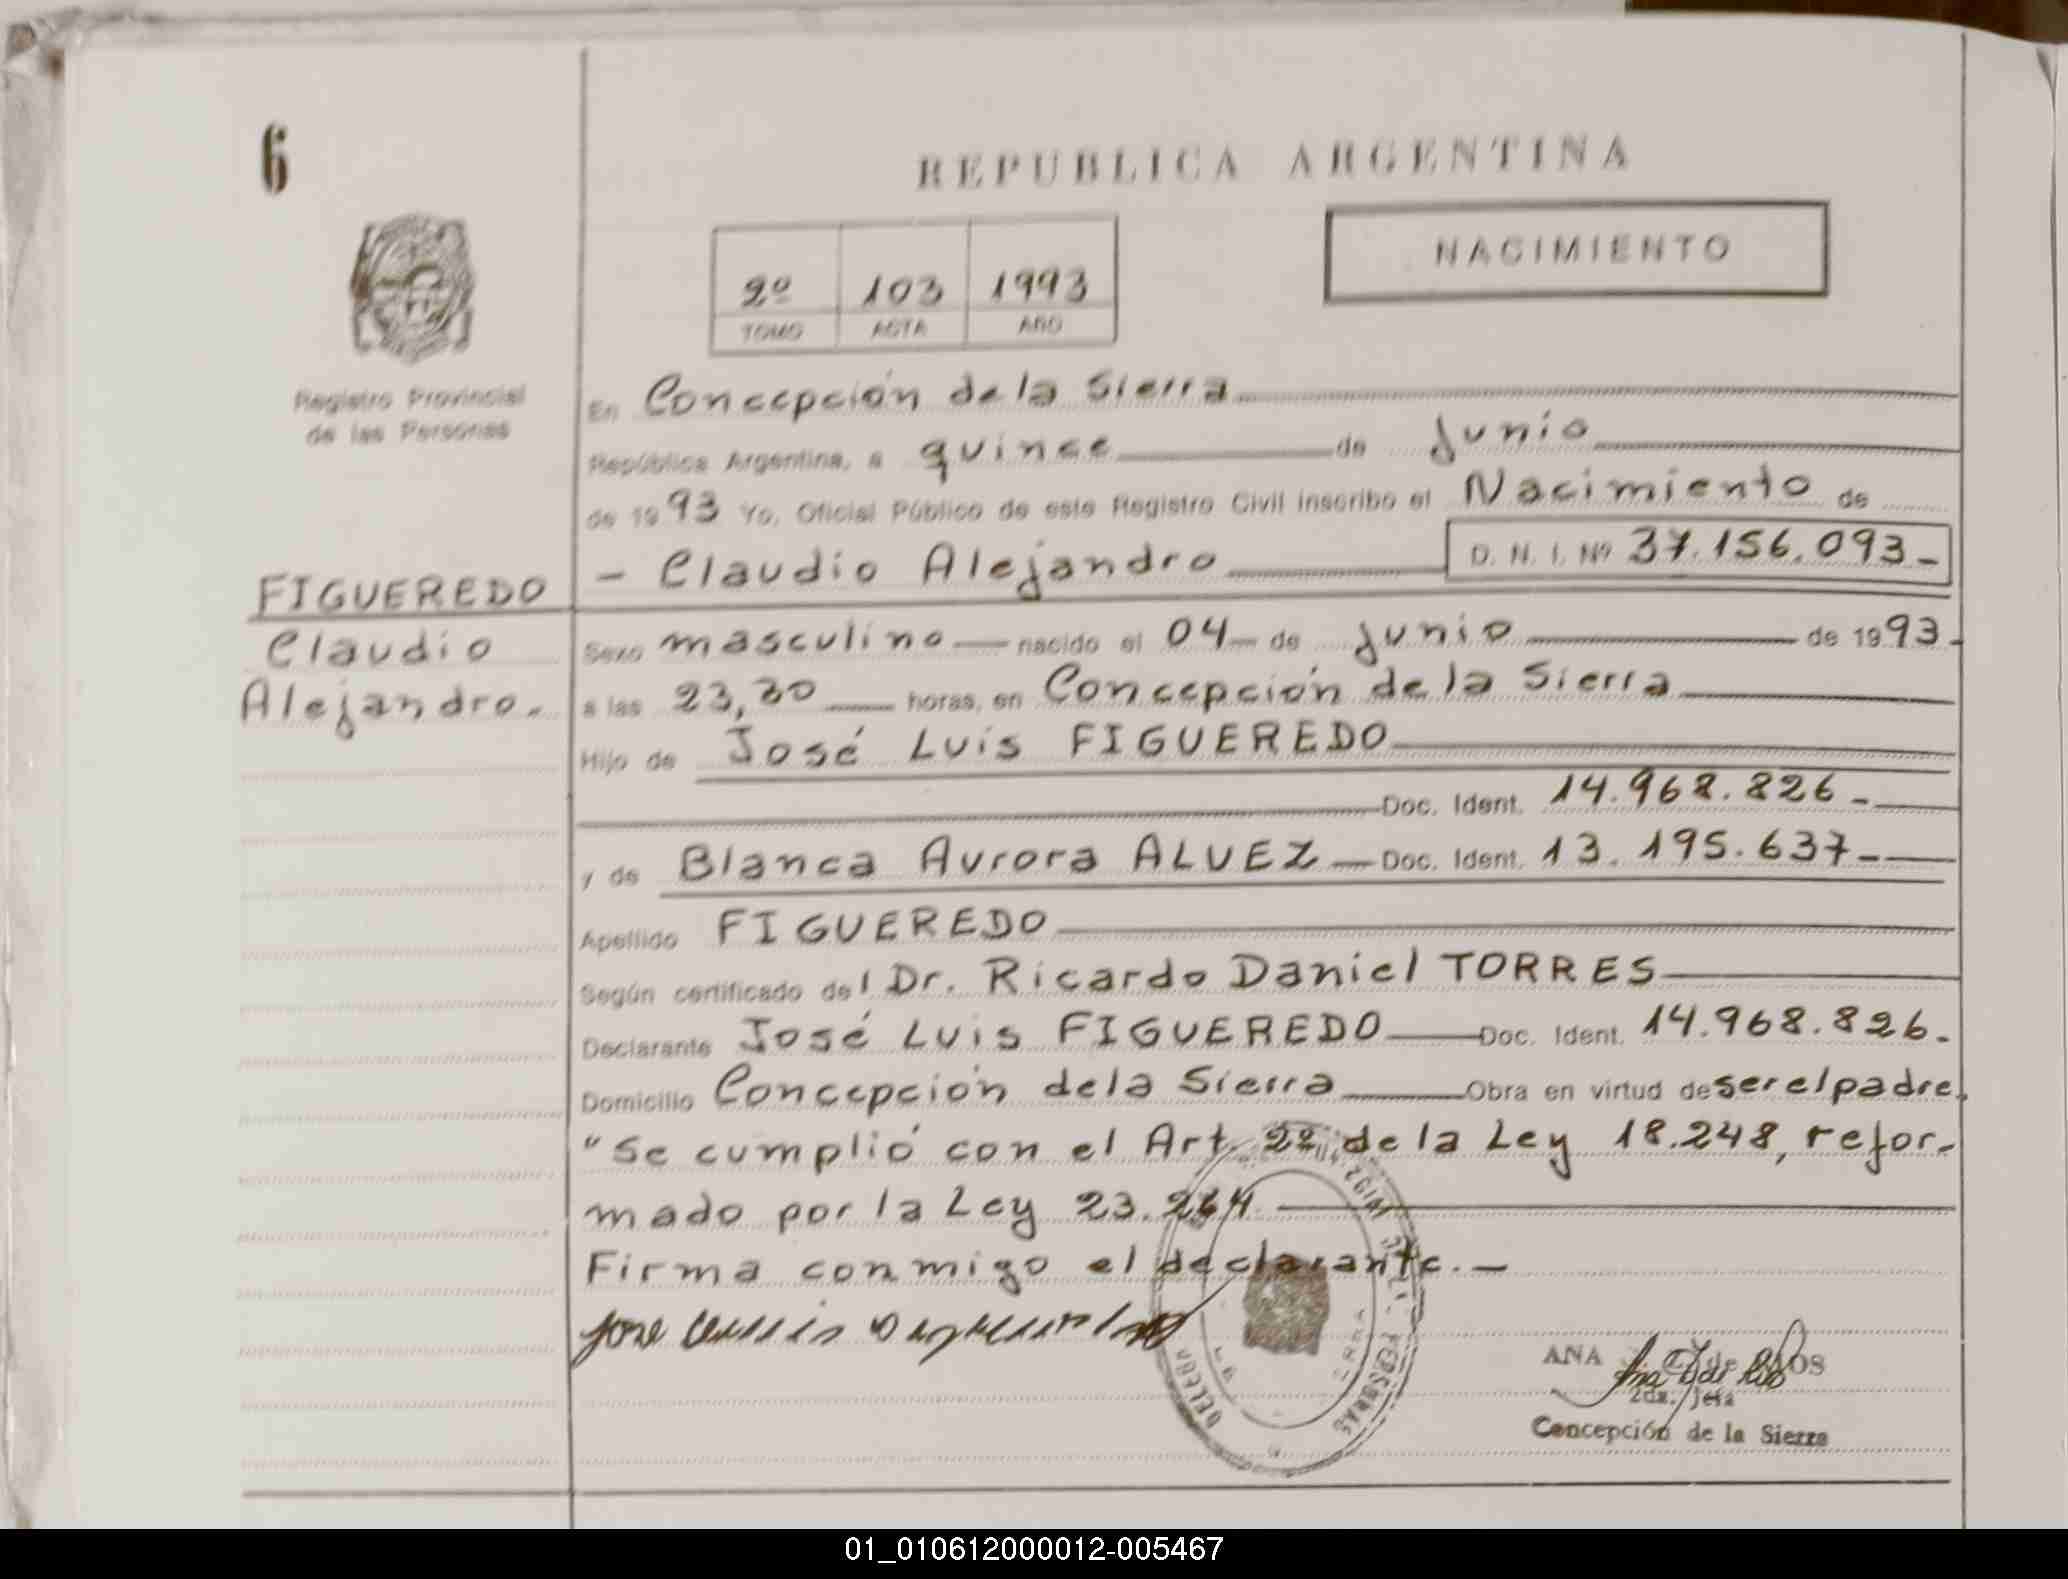 6
REPUBLICA ARGENTINA
NACIMIENTO
2º 103 1993
TOMO ACTA AÑO
Registro Provincial
de las Personas
En Concepción de la Sierra
República Argentina, a quince de Junio
de 1993 Yo, Oficial Público de este Registro Civil inscribo el Nacimiento de
- Claudio Alejandro D. N. I. Nº 37.156.093-
FIGUEREDO
Claudio
Alejandro.
Sexo masculino nacido el 04 de Junio de 1993.
a las 23,30 horas, en Concepción de la Sierra
Hijo de José Luis FIGUEREDO
Doc. Ident. 14.968.826-
y de Blanca Aurora ALVEZ Doc. Ident. 13.195.637-
Apellido FIGUEREDO
Según certificado del Dr. Ricardo Daniel TORRES
Declarante José Luis FIGUEREDO Doc. Ident. 14.968.826.
Domicilio Concepción de la Sierra Obra en virtud de ser el padre.
"Se cumplió con el Art. 2º de la Ley 18.248, refor-
mado por la Ley 23.264
Firma conmigo el declarante.-
ANA
2da. Jefa
Concepción de la Sierra
01_010612000012-005467